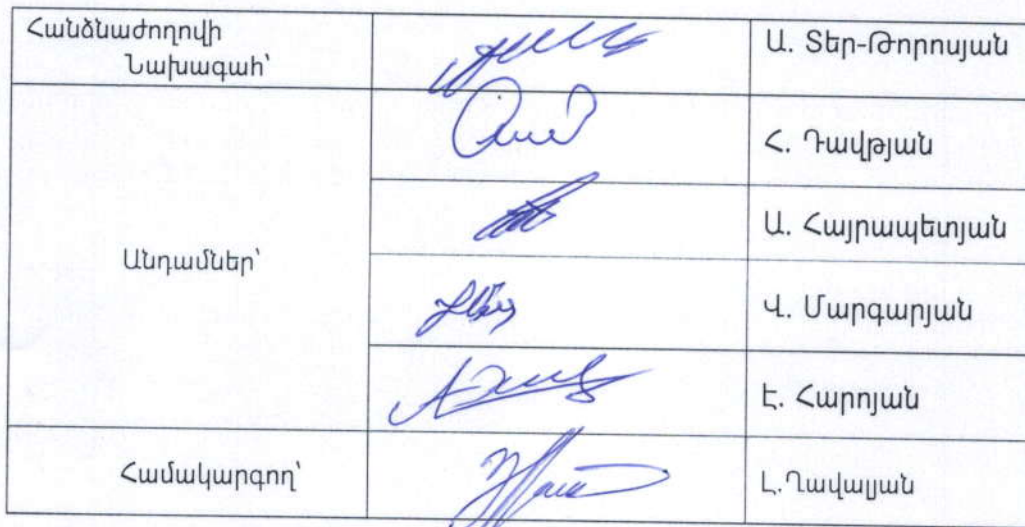 Հանձնաժողովի
Նախագահ՝
Ա. Տեր-Թորոսյան
Հ. Դավթյան
Ա. Հայրապետյան
Անդամներ՝
Վ. Մարգարյան
Է. Հարոյան
Համակարգող՝
Լ.Ղավալյան